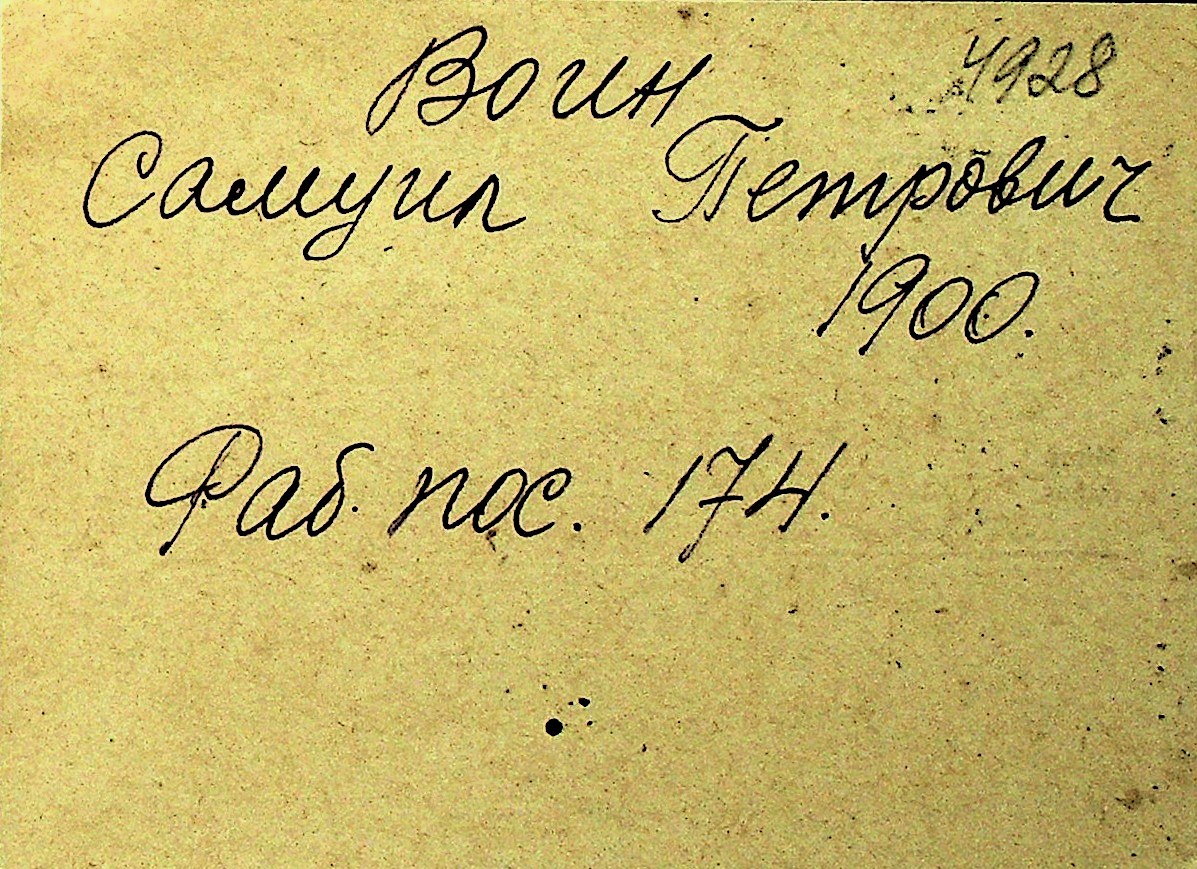 Воин 4928
Самуил Петрович
1900.
Раб. пос. 174.